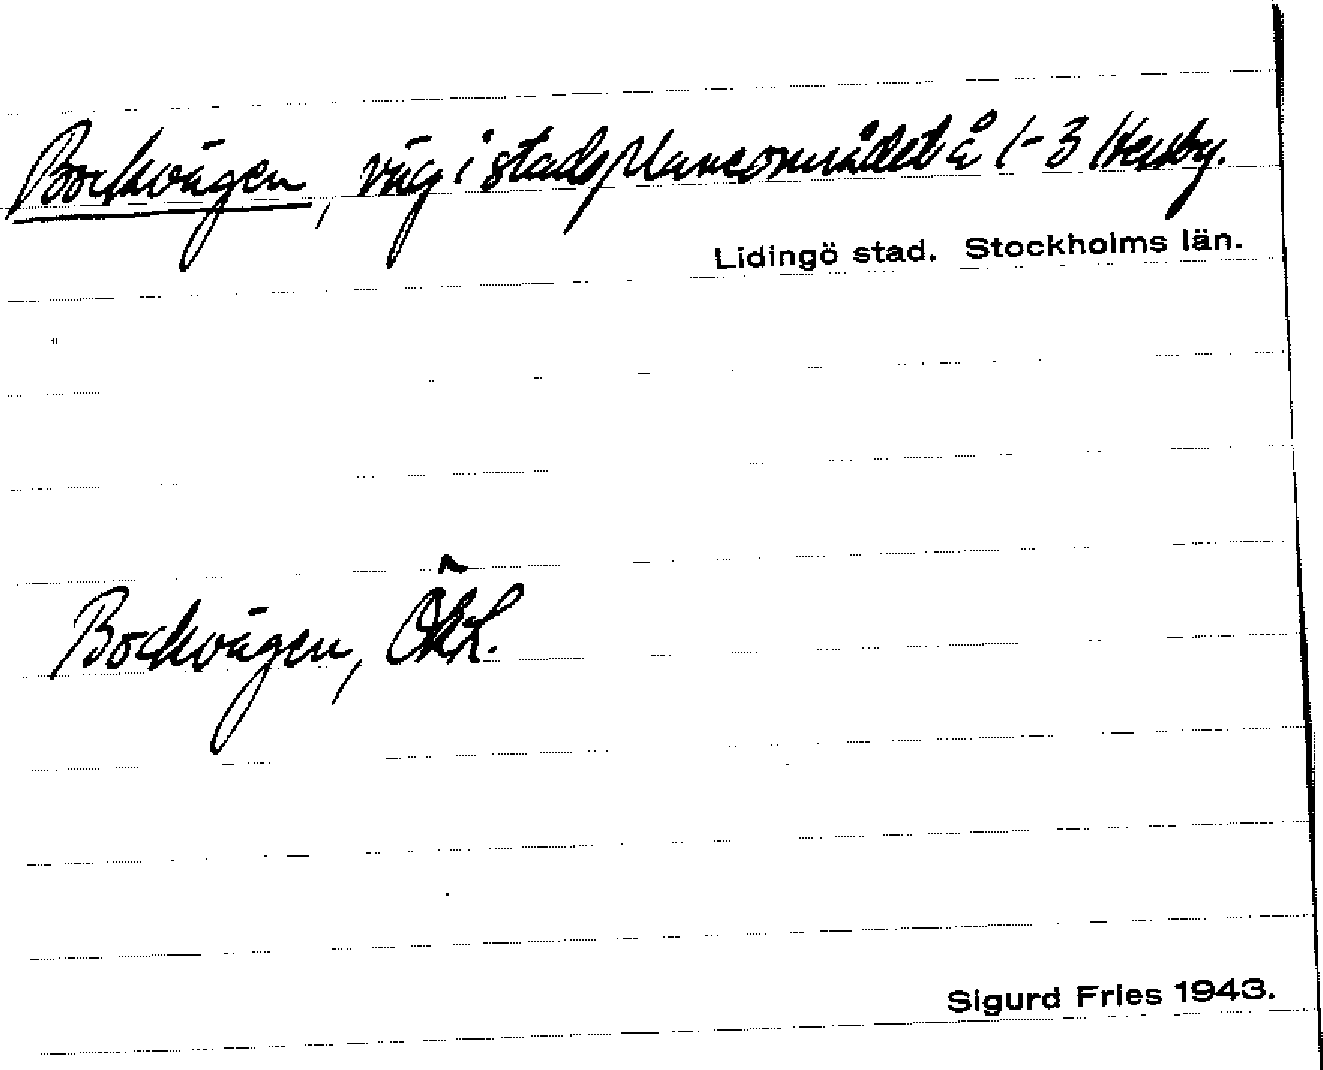 Bockvägen, väg i stadsplaneområdet å 1-3 Hersby.
Lidingö stad. Stockholms län.
Bockvägen, ÖKK.
Sigurd Fries 1943.